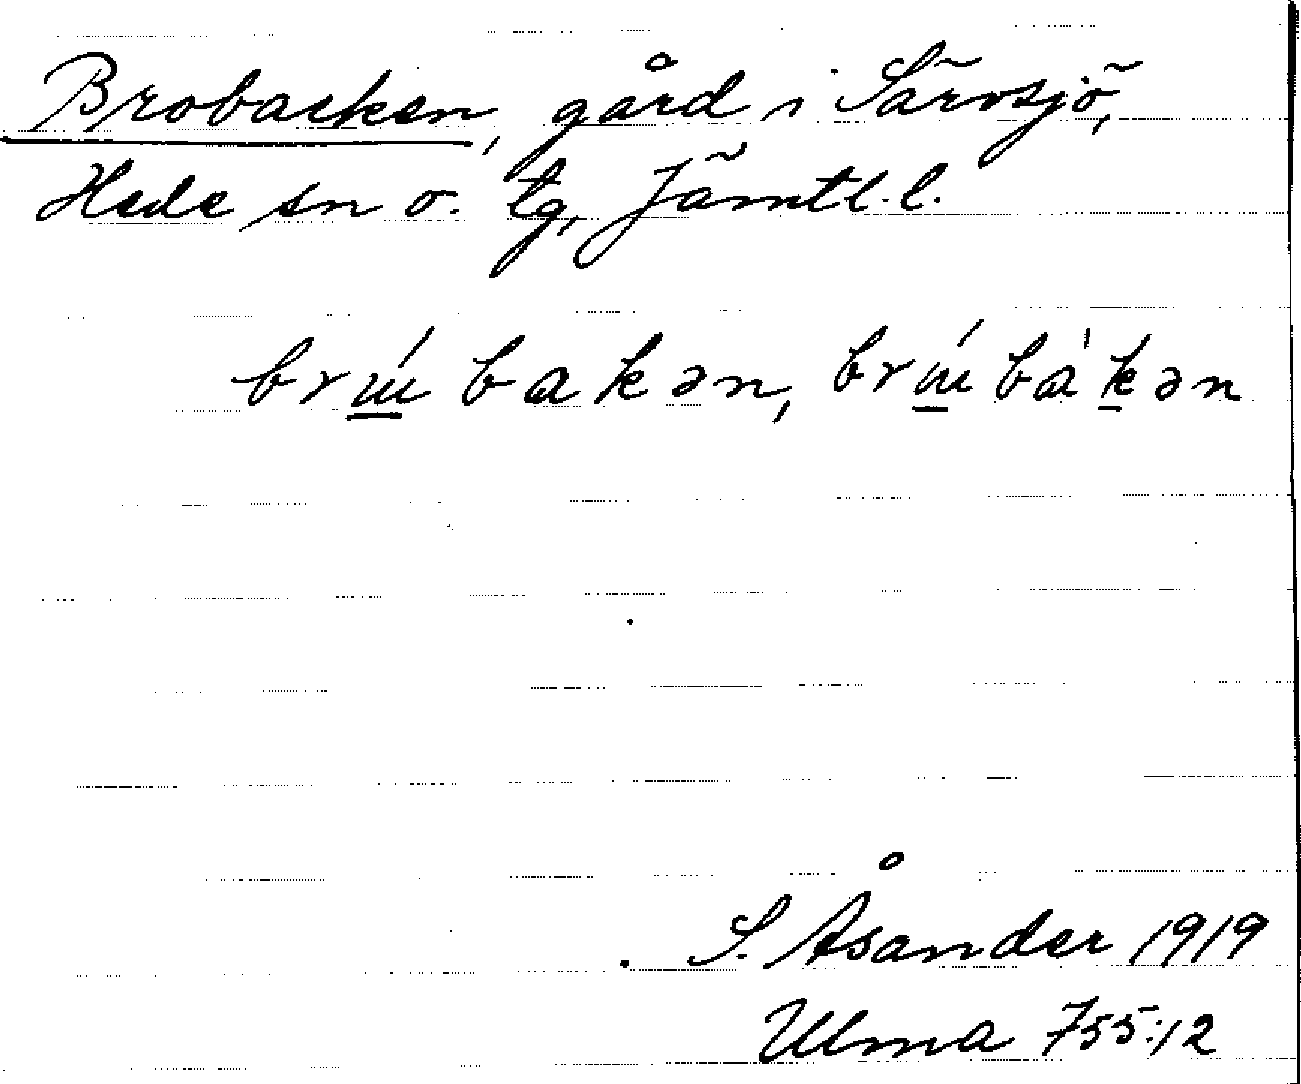 Brobacken, gård i Särvsjö,
Hede sn o. tg, Jämtl. l.
brɯ́bakən, brɯ́bàkən
S. Åsander 1919
Ulma 755:12